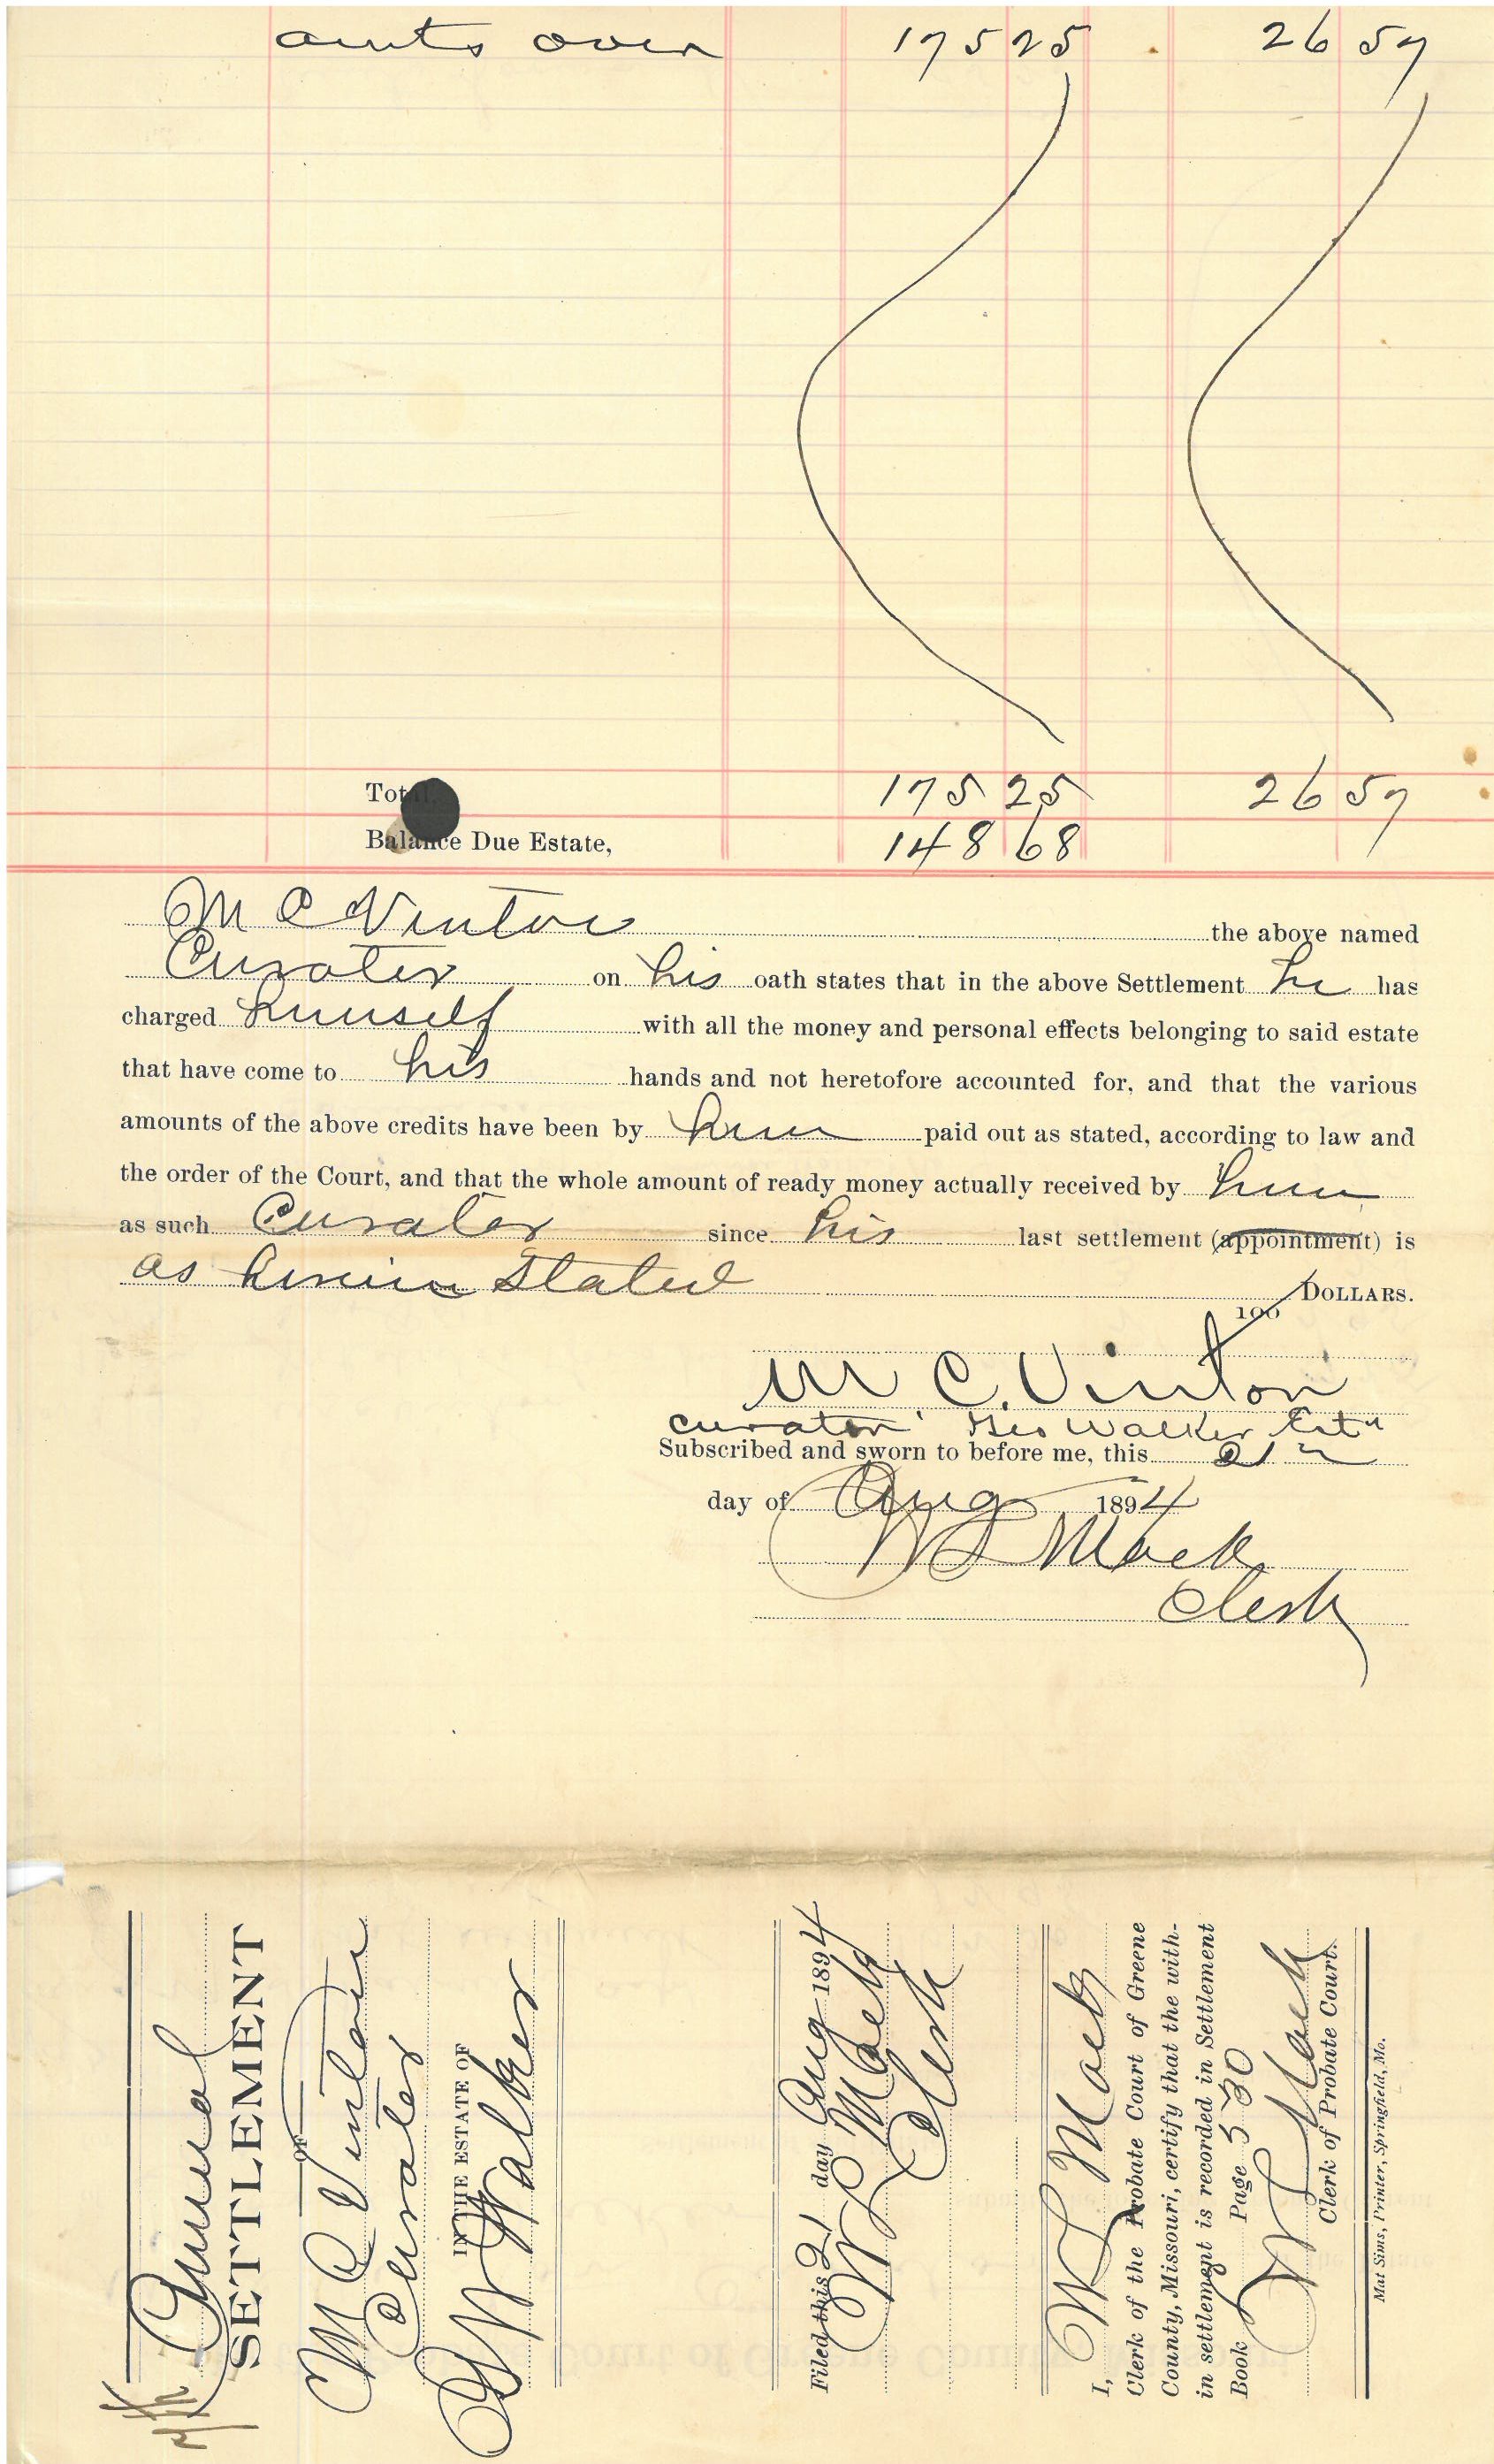 amts over 175 25 26 57
Total. 175 25 26 57
Balance Due Estate, 148 68
M C Vinton the above named
Curator on his oath states that in the above Settlement he has
charged himself with all the money and personal effects belonging to said estate
that have come to his hands and not heretofore accounted for, and that the various
amounts of the above credits have been by him paid out as stated, according to law and
the order of the Court, and that the whole amount of ready money actually received by him
as such Curator since his last settlement (appointment) is
as herein Stated
100 DOLLARS.
M C. Vinton
curator Geo Walker Est
Subscribed and sworn to before me, this 21
day of Aug 1894
W L Mack
Clerk
Annual
SETTLEMENT
OF
M C Vinton
Curator
IN THE ESTATE OF
Walker
Filed this 21 day Aug 1894
W L Mack
Clerk
I, W L Mack
Clerk of the Probate Court of Greene
County, Missouri, certify that the with-
in settlement is recorded in Settlement
Book Page 530
W L Mack
Clerk of Probate Court.
Mat Sims, Printer, Springfield, Mo.